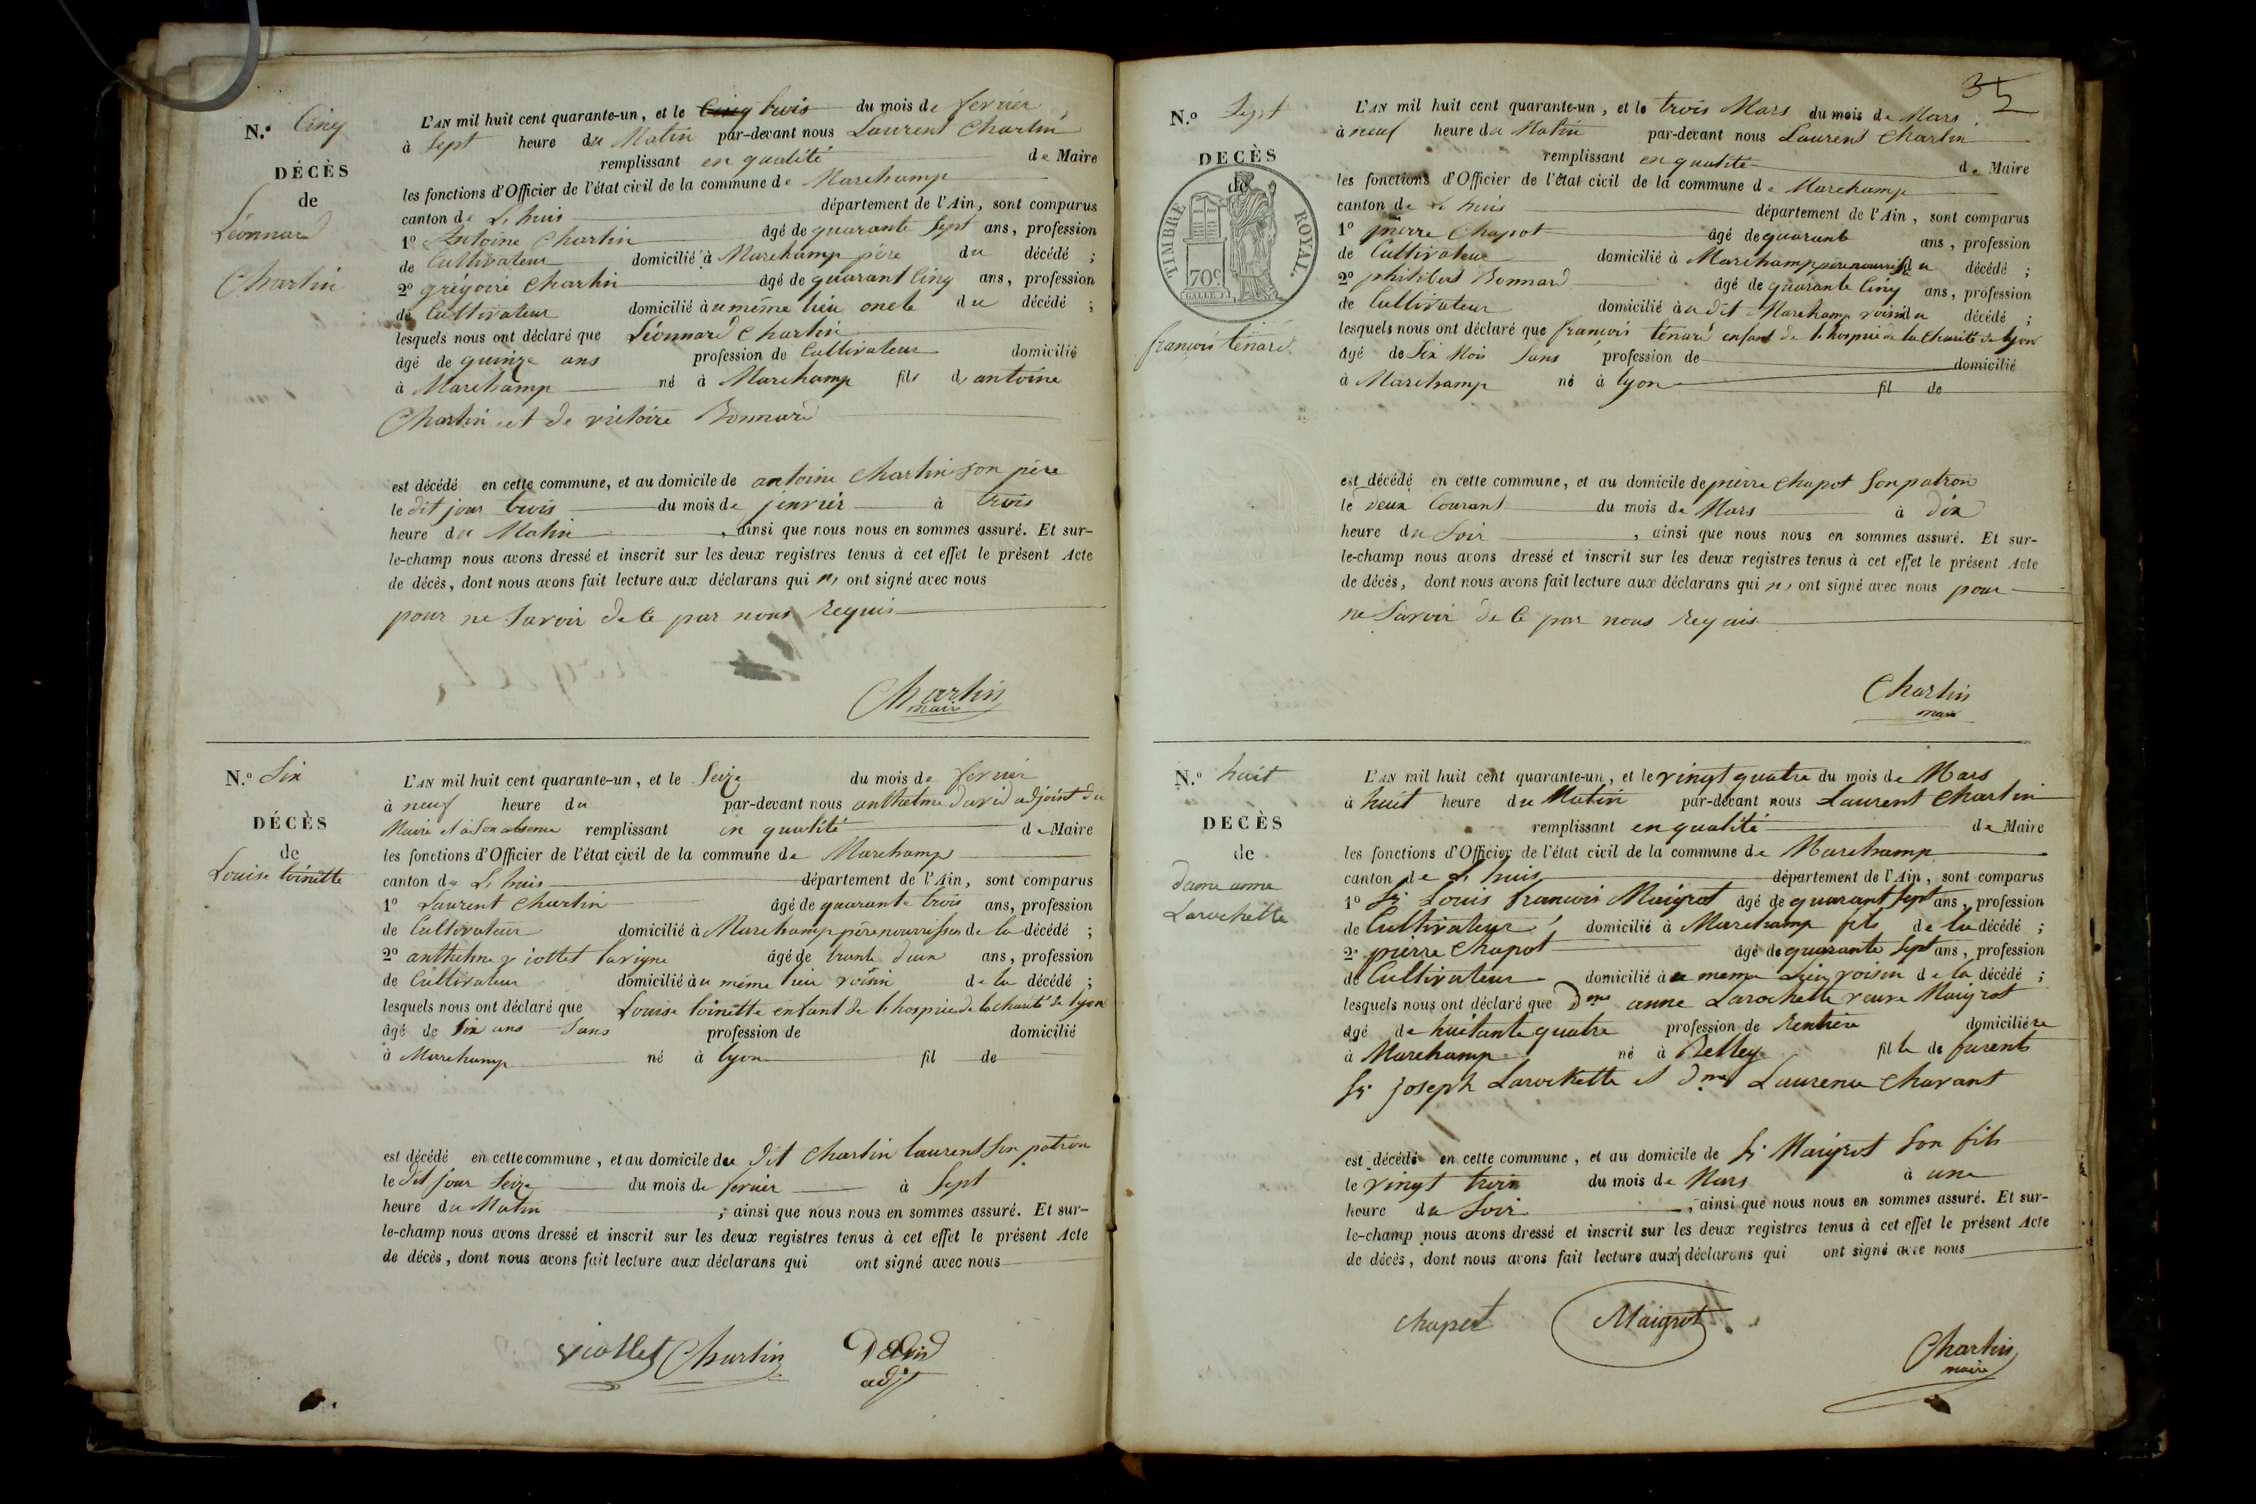 N.º Cinq
DÉCÈS
de
Léonnard
Chartin
L'AN mil huit cent quarante-un, et le Cinq trois du mois de fevrier
à Sept heure du Matin par-devant nous Laurent Chartin
remplissant en qualité de Maire
les fonctions d'Officier de l'état civil de la commune de Marchamp
canton de L'huis département de l'Ain, sont comparus
1º Antoine Chartin âgé de quarante Sept ans, profession
de Cultivateur domicilié à Marchamp père du décédé ;
2º grégoire Chartin âgé de quarant Cinq ans, profession
de Cultivateur domicilié au même lieu oncle du décédé ;
lesquels nous ont déclaré que Léonnard Chartin
âgé de quinze ans profession de Cultivateur domicilié
à Marchamp né à Marchamp fils d antoine
Chartin et de victoire Bonnard
est décédé en cette commune, et au domicile de antoine Chartin son père
le dit jour trois du mois de jenvrier à trois
heure du Matin, ainsi que nous nous en sommes assuré. Et sur-
le-champ nous avons dressé et inscrit sur les deux registres tenus à cet effet le présent Acte
de décès, dont nous avons fait lecture aux déclarans qui n, ont signé avec nous
pour ne Savoir de ce par nous Requis
Chartin
maire
N.º Six
DÉCÈS
de
Louise toinette
L'AN mil huit cent quarante-un, et le Seize du mois de fevrier
à neuf heure du par-devant nous anthelme david adjoint du
Maire et à Son absence remplissant en qualité de Maire
les fonctions d'Officier de l'état civil de la commune de Marchamp
canton de L'huis département de l'Ain, sont comparus
1º Laurent Chartin âgé de quarante trois ans, profession
de Cultivateur domicilié à Marchamp père nourrissier de la décédé ;
2º anthelme viollet lavigne âgé de trente d'un ans, profession
de Cultivateur domicilié au même lieu voisin de la décédé ;
lesquels nous ont déclaré que Louise toinette enfant de l'hospice de la charité de lyon
âgé de Six ans Sans profession de domicilié
à Marchamp né à lyon fil de
est décédé en cette commune, et au domicile du dit Chartin laurent Son patron
le dit jour Seize du mois de fevrier à Sept
heure du Matin ; ainsi que nous nous en sommes assuré. Et sur-
le-champ nous avons dressé et inscrit sur les deux registres tenus à cet effet le présent Acte
de décès, dont nous avons fait lecture aux déclarans qui ont signé avec nous
viollet Chartin David
adjt
35
N.º Sept
DECÈS
de
TIMBRE ROYAL.
70c
françois tenard
L'AN mil huit cent quarante-un, et le trois Mars du mois de Mars
à neuf heure du Matin par-devant nous Laurent Chartin
remplissant en qualité de Maire
les fonctions d'Officier de l'état civil de la commune de Marchamp
canton de L'huis département de l'Ain, sont comparus
1º pierre Chapot âgé de quarante ans, profession
de Cultivateur domicilié à Marchamp père nourrissier du décédé ;
2º philibert Bonnard âgé de quarante Cinq ans, profession
de Cultivateur domicilié au dit Marchamp voisin du décédé ;
lesquels nous ont déclaré que françois ténard enfant de l'hospice de la Charité de lyon
âgé de Six Mois Sans profession de domicilié
à Marchamp né à lyon fil de
est décédé en cette commune, et au domicile de pierre Chapot Son patron
le deux Courant du mois de Mars à dix
heure du Soir, ainsi que nous nous en sommes assuré. Et sur-
le-champ nous avons dressé et inscrit sur les deux registres tenus à cet effet le présent Acte
de décès, dont nous avons fait lecture aux déclarans qui n, ont signé avec nous pour
ne Savoir de ce par nous Requis
Chartin
maire
N.º huit
DECÈS
de
dame anne
Larochette
L'AN mil huit cent quarante-un, et le vingt quatre du mois de Mars
à huit heure du Matin par-devant nous Laurent Chartin
remplissant en qualité de Maire
les fonctions d'Officier de l'état civil de la commune de Marchamp
canton de L'huis département de l'Ain, sont comparus
1º Sr Louis francois Maigrot âgé de quarant Sept ans, profession
de Cultivateur domicilié à Marchamp fils de la décédé ;
2º pierre Chapot âgé de quarante Sept ans, profession
de Cultivateur domicilié au meme Lieu voisin de la décédé ;
lesquels nous ont déclaré que Dme anne Larochette veuve Maigrot
âgé de huitante quatre profession de Rentière domiciliére
à Marchamp né à Belley fille de parents
Sr joseph Larochette et Dme Laurence Chavant
est décédé en cette commune, et au domicile de Sr Maigrot Son fils
le vingt trois du mois de Mars à une
heure du Soir, ainsi que nous nous en sommes assuré. Et sur-
le-champ nous avons dressé et inscrit sur les deux registres tenus à cet effet le présent Acte
de décès, dont nous avons fait lecture aux déclarans qui ont signé avec nous
chapot Maigrot
Chartin
maire